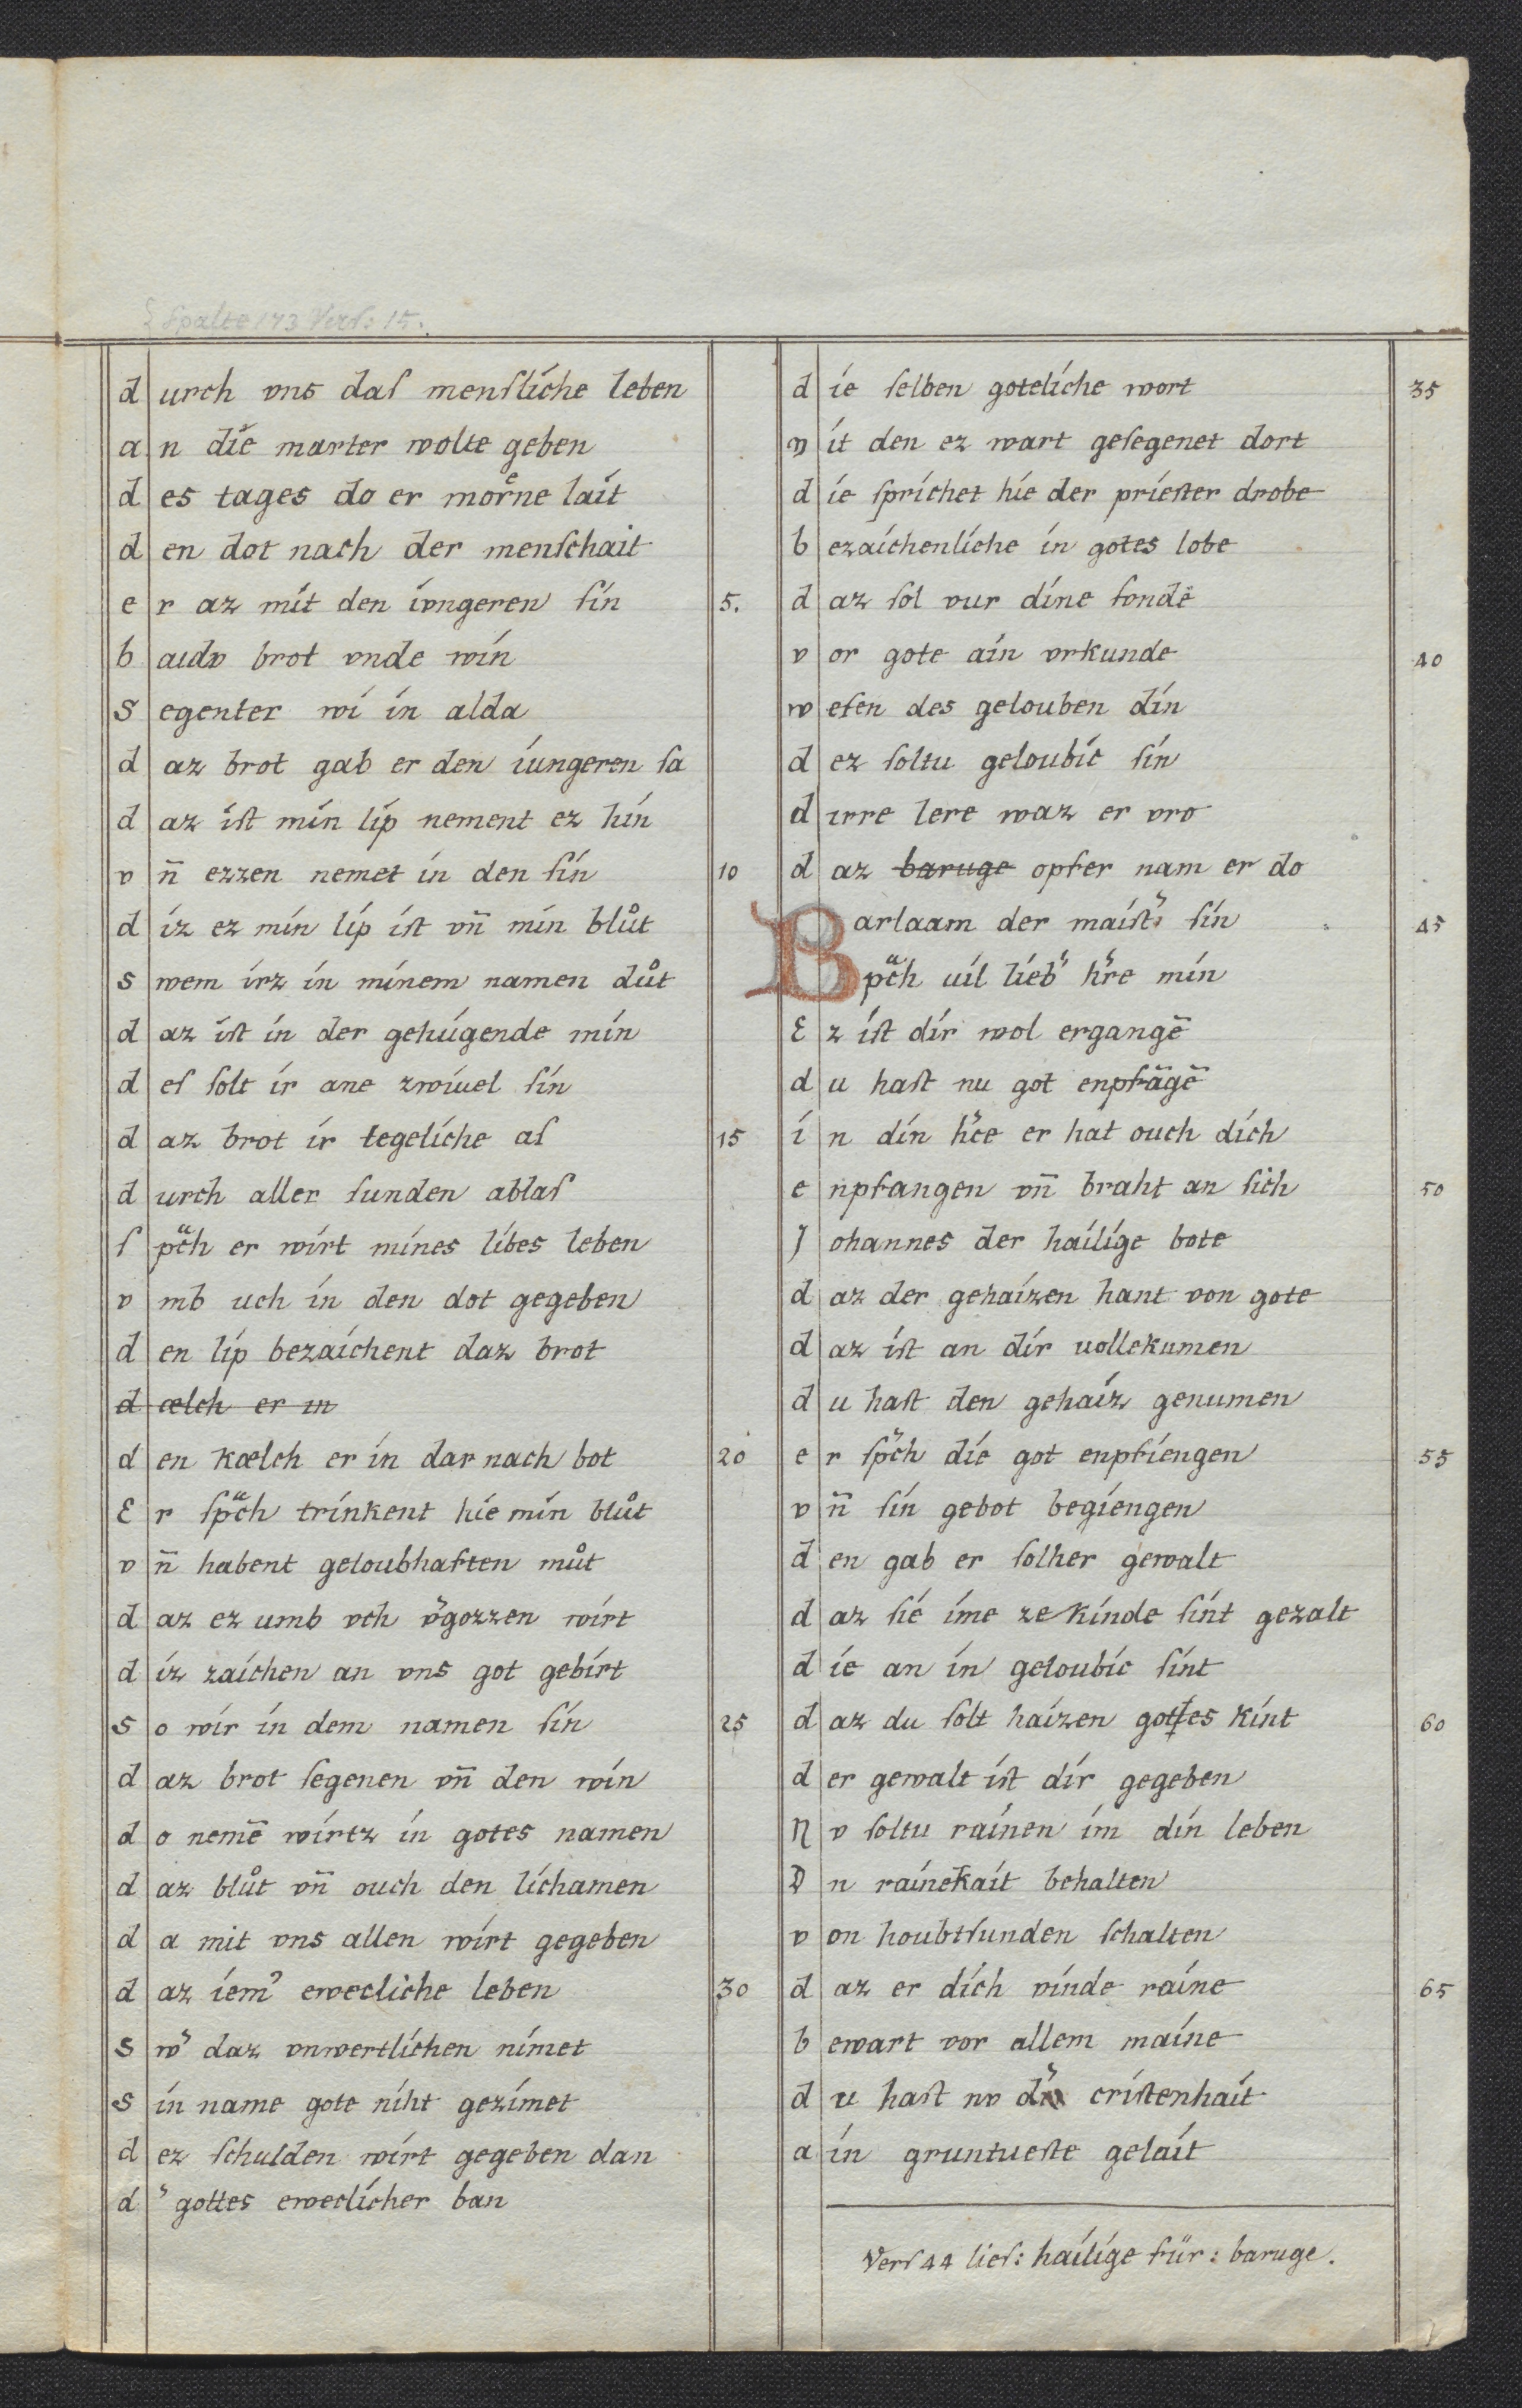 Spalte 173 Verſ: 15.
durch vns daſ menſliche leben
an die marter wolte geben
des tages do er morne lait
den dot nach der menſchait
er az mit den ivngeren ſin
5.
baidv brot vnde win
Segenter wi in alda
daz brot gab er den iungeren ſa
daz iſt min lip nement ez hin
vn̄ ezzen nemet in den ſin
10
diz ez min lip iſt vn̄ min blůt
swem irz in minem namen důt
daz iſt in der gehúgende min
deſ ſolt ir ane zwiuel ſin
daz brot ir tegeliche aſ
15
durch aller ſunden ablaſ
ſpͣch er wirt mines libes leben
vmb uch in den dot gegeben
den lip bezaichent daz brot
dælch er in
den kælch er in dar nach bot
20
Er ſpͣch trinkent hie min blůt
vn̄ habent geloubhaften můt
daz ez umb vch v᾽gozzen wirt
diz zaichen an vns got gebirt
so wir in dem namen ſin
25
daz brot ſegenen vn̄ den win
do nemē wirtz in gotes namen
daz blůt vn̄ ouch den lichamen
da mit vns allen wirt gegeben
daz iem᾽ ewecliche leben
30
sw᾽ daz vnwertlichen nimet
sin name gote niht gezimet
dez ſchulden wirt gegeben dan
d᾽ gottes eweclicher ban
die ſelben goteliche wort
35
mit den ez wart geſegenet dort
die ſprichet hie der prieſter drobe
bezaichenliche in gotes lobe
daz ſol vur dine ſonde
vor gote ain vrkunde
40
weſen des gelouben din
dez ſoltu geloubic ſin
dirre lere waz er vro
daz baruge opfer nam er do
Barlaam der maiſt᾽ ſin
45
ſpͣch uil lieb᾽ h᾽re min
Ez iſt dir wol ergangē
du haſt nu got enpfāgē
in din h᾽ce er hat ouch dich
enpfangen vn̄ braht an ſich
50
Johannes der hailige bote
daz der gehaizen hant von gote
daz iſt an dir uollekumen
du haſt den gehaiz genumen
er ſpͣch die got enpfiengen
55
vn̄ ſin gebot begiengen
den gab er ſolher gewalt
daz ſie ime ze kinde ſint gezalt
die an in geloubic ſint
daz du ſolt haizen gottes kint
60
der gewalt iſt dir gegeben
Nv ſoltu rainen im din leben
Dn rainekait behalten
von houbtſunden ſchalten
daz er dich vinde raine
65
bewart vor allem maine
du haſt nv d᾽ criſtenhait
ain gruntueſte gelait
Verſ 44 lieſ: hailige für: baruge.